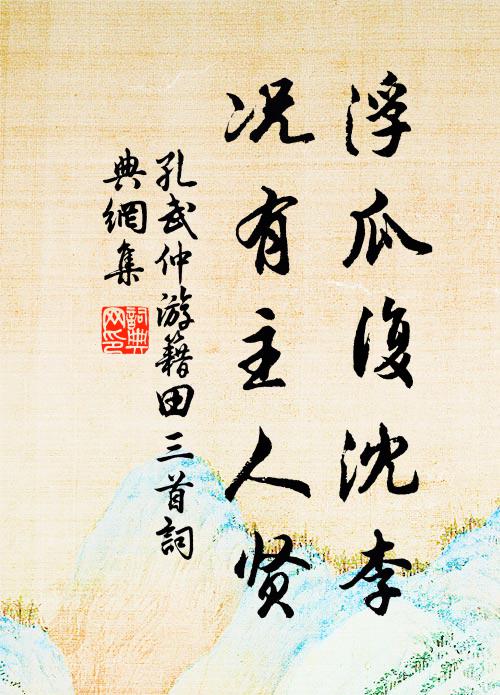 浮瓜復沈李
况有主人贤
孔武仲游籍田三首詞
典網集
詞典
网印